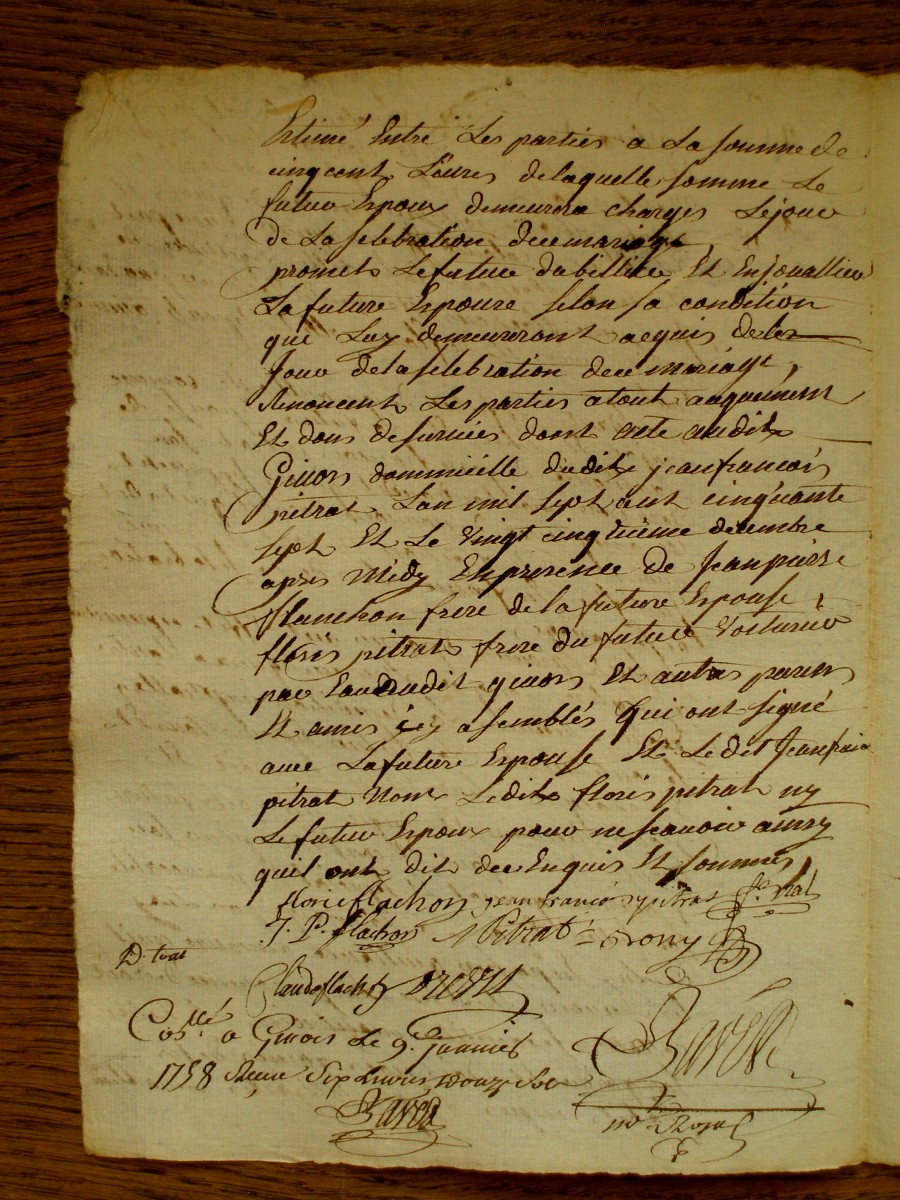 Estimé Entre Les parties a La somme de
cinq cent Livres de laquelle somme Le
futur Epoux demeurera charges Lejour
de La selebration dece mariage,
promet Le futur dabillier Et Enjouallier
La future Epouse selon sa condition
que Luy demeureront acquis de les
Jour de la selebration dece mariage,
Renoncent Les parties atout augment
Et dons de survies dont acte audit
Givors dommicille dudit jean francois
pitrat Lan mil sept cent cinquante
sept Et Le Vingt cinq decembre
apres Midy En presence de Jean pierre
flanchon frere de la future Epouse,
floris pitrat frere du future Voiturier
par Eau dudit givors Et autres parens
Et amis icy asemblés qui ont signé
avec La future Epouse Et Ledit Jean
pitrat Non Ledit floris pitrat ny
Le futur Epoux pour ne scavoir ainsy
quil ont dit de ce Enquis Et sommés
florie flachon jean francois pitrat
J. P. flachon Pitrat
Claude flachon
Con.llé a Givors Le 9. Janvier
1758 Receu Six Livres douze sols
Baven
Baven
no.re Royal